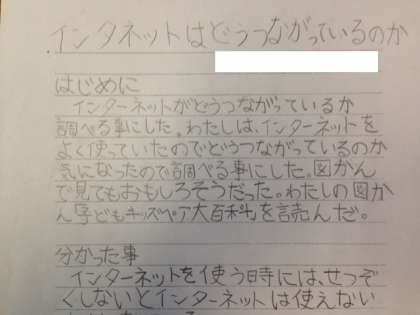 インタネットはどうつながっているのか
はじめに
インターネットがどうつながっているか
調べる事にした。わたしは、インターネットを
よく使っていたのでどうつながっているのか
気になったので調べる事にした。図かん
で見てもおもしろそうだった。わたしの図か
ん学どもキッズペア大百科を読んだ。
分かった事
インターネットを使う時には、せつぞ
くしないとインターネットは使えない